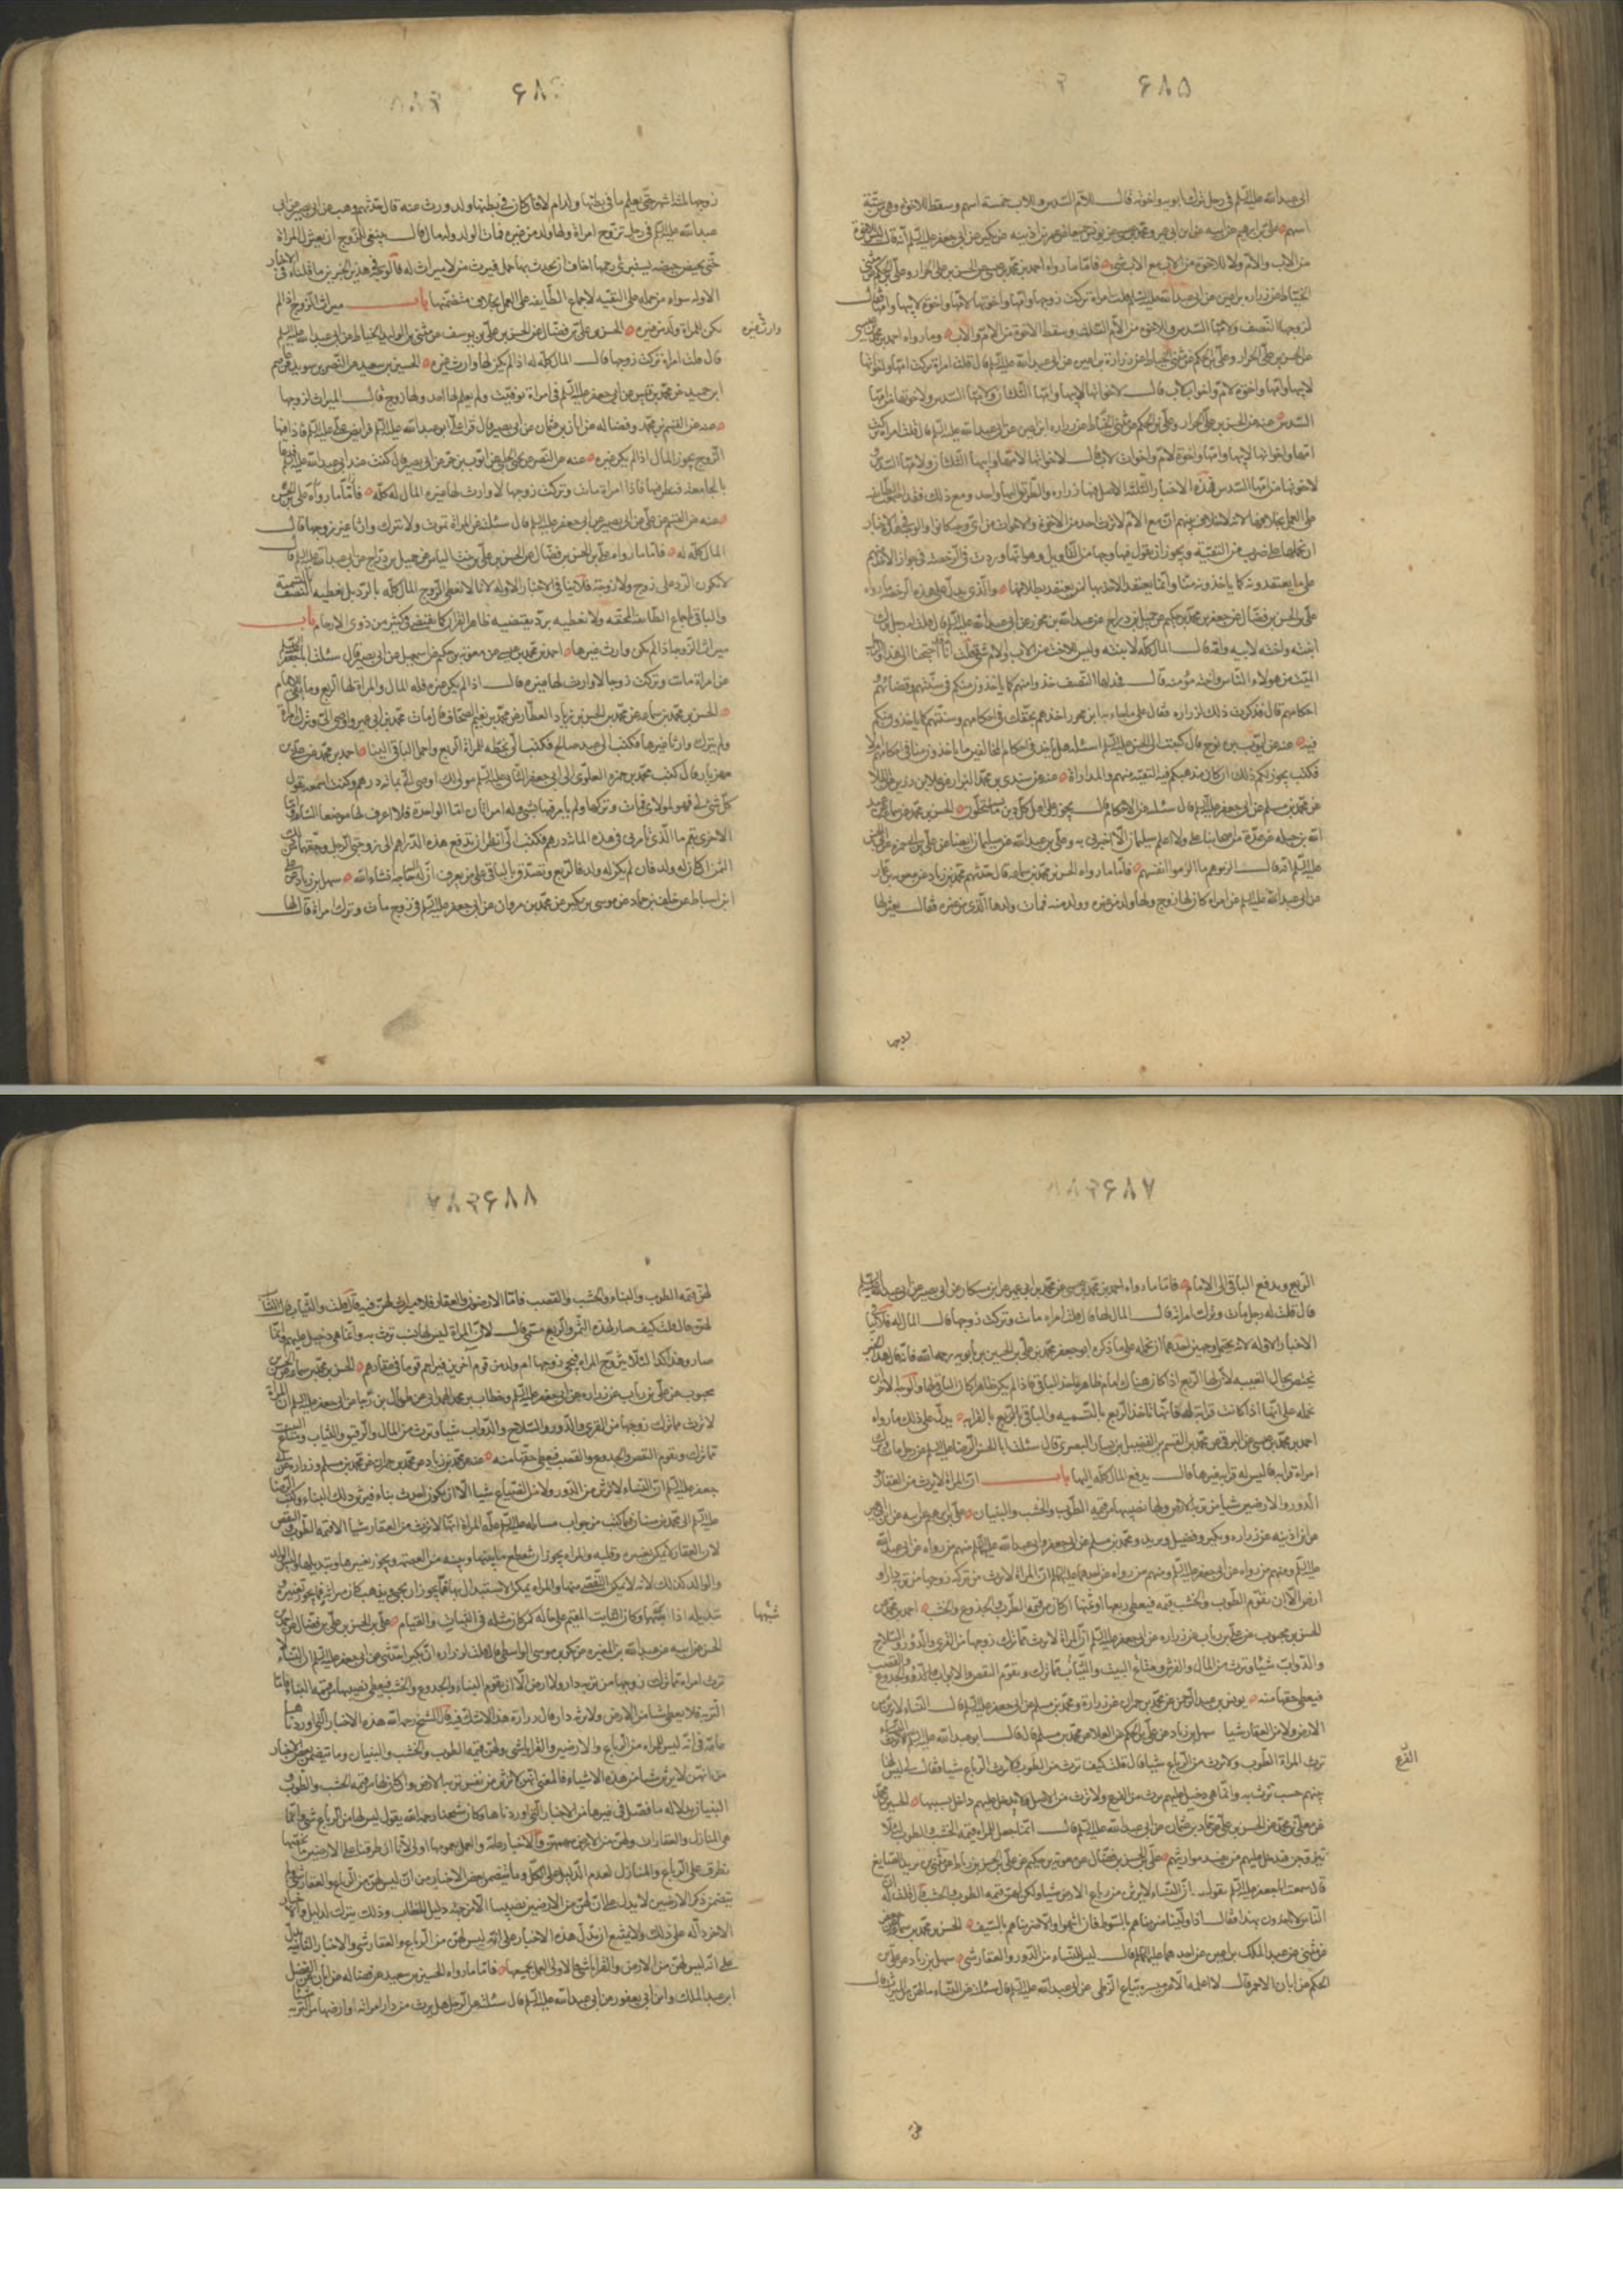 ۶۸۵
ابی عبدالله علیه السلم فی رجل ترک ابویه واخوته قال للام السدس وللاب خمسة اسهم وسقط الاخوة وهی من ستة
اسهم علی بن ابرهیم عن ابیه عن ابن ابی عمیر ومحمد بن عیسی عن یونس جمیعا عن عمر بن اذینه عن بکیر عن ابی جعفر علیه السلم انه قال
من الاب والام ولا للاخوة من الاب مع الاب شی فاما ما رواه احمد بن محمد بن عیسی عن الحسن بن علی الخزاز وعلی بن الحکم عن مثنی
الحناط عن زراره بن اعین عن ابی عبدالله علیه السلم قلت امراة ترکت زوجها وامها واخوتها لامها واخوة لابیها وامها فقال
لزوجها النصف ولامها السدس وللاخوة من الام الثلث وسقط الاخوة من الام والاب وما رواه احمد بن محمد بن عیسی
عن الحسن بن علی الخزاز وعلی بن الحکم عن مثنی الحناط عن زرارة بن اعین عن ابی عبدالله علیه السلم قال قلت امراة ترکت امها واخواتها
لابیها وامها واخوة لام واخوات لاب قال لاخواتها لابیها وامها الثلثان ولامها السدس ولاخوتها من امها
السدس عنه عن الحسن بن علی الخزاز وعلی بن الحکم عن مثنی الحناط عن زراره ابن اعین عن ابی عبدالله علیه السلم قال قلت امراة ترکت
امها واخواتها لابیها وامها واخوة لام واخوات لاب قال لاخواتها لامها وابیها الثلثان ولامها السدس
لاخوتها من امها السدس فهذه الاخبار الثلثة الاصل فیها زراره والطریق الیها واحد ومع ذلک فقد اجمعت الطایفه
علی العمل بخلافها لانه لا خلاف بینهم ان مع الام لا یرث احد من الاخوة والاخوات من ای جهة کانوا والوجه فی هذه الاخبار
ان نحملها علی ضرب من التقیة ویجوز ان نقول فیها وجها من التاویل وهو انها وردت فی الرخصة فی جواز الاخذ منهم
علی ما یعتقدونه کما یاخذونه منا وانما یعتقد الاخذ بها لمن یعتقد بطلانها والذی یدل علی هذه الرخصة ما رواه
علی بن الحسن بن فضال عن جعفر بن محمد بن حکیم عن جمیل بن دراج عن عبدالله بن محرز عن ابی عبدالله علیه السلم قال قلت له رجل ترک
ابنته واخته لابیه وامه قال المال کله لابنته ولیس للاخت من الاب والام شی فقلت انا قد احتجنا الی هذا والرجل
المیت من هولاء الناس واخته مؤمنة قال فخذ لها النصف خذوا منهم کما یاخذون منکم فی سنتهم وقضائهم
احکامهم قال فذکرت ذلک لزراره فقال علی ما جاء به ابن محرز لنورا خذهم بحقک فی احکامهم وسنتهم کما یاخذون منکم
فیه عنه عن ایوب بن نوح قال کتبت الی ابی الحسن علیه السلم اسئله هل ناخذ فی احکام المخالفین ما یاخذون منا فی احکامهم ام لا
فکتب یجوز لکم ذلک ان کان مذهبکم فیه التقیة منهم والمداراة عنه عن سندی بن محمد البزاز عن علاء بن رزین القلا
عن محمد بن مسلم عن ابی جعفر علیه السلم قال سئلته عن الاحکام قال یجوز علی اهل کل دین ما یستحلون الحسن بن محمد بن سماعه عن عبد
الله بن جبله عن عدة من اصحابنا علی ولا اعلم سلیمان الا اخبرنی به وعلی بن عبدالله عن سلیمان ایضا عن علی بن ابی حمزة عن ابی الحسن
علیه السلم انه قال الزموهم بما الزموا انفسهم فاما ما رواه الحسن بن محمد بن سماعه قال حدثهم محمد بن زیاد عن معویه بن عمار
عن ابی عبدالله علیه السلم عن امراه کان لها زوج ولها ولد من غیره وولد منه فمات ولدها الذی من غیره فقال یعتزلها
زوجها
۶۸۶
زوجها ثلثة اشهر حتی یعلم ما فی بطنها ولد ام لا فان کان فی بطنها ولد ورث عنه قال حدثهم وهب عن ابی بصیر عن ابی
عبدالله علیه السلم فی رجل تزوج امراة ولها ولد من غیره فمات الولد وله مال قال ینبغی للزوج ان یعتزل المراة
حتی یحیض حیضه یستبری رحمها اخاف ان یحدث بها حمل فیرث من لا میراث له فالوجه فی هذین الخبرین ما قلناه فی الاخبار
الاوله سواء من حمله علی التقیه لاجماع الطایفه علی العمل بخلاف متضمنها باب میراث الزوج اذا لم
یکن للمراة ولد من غیره الحسن بن علی بن فضال عن الحسن بن علی بن یوسف عن مثنی بن الولید الحناط عن ابی عبدالله علیه السلم
وارث غیره
قال قلت امراة ترکت زوجها قال المال کله له اذا لم یکن لها وارث غیره الحسین بن سعید عن النضر بن سوید عن عاصم
ابن حمید عن محمد بن قیس عن ابی جعفر علیه السلم فی امراة توفیت ولم یعلم لها احد ولها زوج قال المیراث لزوجها
عنه عن القسم بن محمد وفضاله عن ابان بن عثمان عن ابی بصیر قال قرا علی ابو عبدالله علیه السلم فرایض علی علیه السلم فاذا فیها
الزوج یحوز المال اذا لم یکن غیره عنه عن النضر عن یحیی الحلبی عن ایوب بن حر عن ابی بصیر قال کنت عند ابی عبدالله علیه السلم فدعا
بالجامعة فنظر فیها فاذا امراة ماتت وترکت زوجها لا وارث لها غیره المال له کله فاما ما رواه علی بن الحسن
عنه عن القسم عن علی عن ابی بصیر عن ابی جعفر علیه السلم قال سئلته عن المراة تموت ولا تترک وارثا غیر زوجها قال
المال کله له فاما ما رواه علی بن الحسن بن فضال عن الحسن بن علی بن بنت الیاس عن جمیل بن دراج عن ابی عبدالله علیه السلم قال
لا یکون الرد علی زوج ولا زوجة فلا ینافی الاخبار الاوله لانا لا نعطی الزوج المال کله بالرد بل نعطیه النصف بالتسمیة
والباقی لاجماع الطایفة المحقه ولا نعطیه برد یقتضیه ظاهر القران کما یقتضی فی کثیر من ذوی الارحام باب
میراث الزوجة اذا لم یکن وارث غیرها احمد بن محمد بن عیسی عن معویه بن حکیم عن اسمعیل عن ابی بصیر قال سئلت ابا جعفر علیه السلم
عن امراة ماتت وترکت زوجها لا وارث لها غیره قال اذا لم یکن غیره فله المال والمراة لها الربع وما بقی فللامام
الحسن بن محمد بن سماعه عن محمد بن الحسن بن زیاد العطار عن محمد بن نعیم الصحاف قال مات محمد بن ابی عمیر واوصی الی وترک امراة
ولم یترک وارثا غیرها فکتبت الی عبد صالح فکتب الی بخطه للمراة الربع واحمل الباقی الینا احمد بن محمد عن علی بن
مهزیار قال کتب محمد بن حمزه العلوی الی ابی جعفر الثانی علیه السلم مولی لک اوصی الی بمائة درهم وکنت اسمعه یقول
کل شی لی فهو لمولای فمات وترکها ولم یامر فیها بشی وله امراتان اما الواحدة فلا اعرف لها موضعا الساعة
الاخری بقم ما الذی تامرنی فی هذه المائة درهم فکتب الی انظر ان تدفع هذه الدراهم الی زوجتی الرجل وحقهما من ذلک
الثمن ان کان له ولد فان لم یکن له ولد فالربع وتصدق بالباقی علی من تعرف ان له الیه حاجة انشاءالله سهل بن زیاد عن علی
ابن اسباط عن خلف بن حماد عن موسی بن بکیر عن محمد بن مروان عن ابی جعفر علیه السلم فی زوج مات وترک امراة قال لها
۶۸۷
الربع ویدفع الباقی الی الامام فاما ما رواه احمد بن محمد بن عیسی عن محمد بن ابی عمیر عن ابن مسکان عن ابی بصیر عن ابی عبدالله علیه السلم
قال قلت له رجل مات وترک امراته قال المال لها قال قلت امراه ماتت وترکت زوجها قال المال له فلا ینافی
الاخبار الاوله لانه یحتمل وجهین احدهما ان نحمله علی ما ذکره ابو جعفر محمد بن علی بن الحسین بن بابویه رحمه الله فانه قال هذا الخبر
یختص بحال الغیبة لان لها الربع اذا کان هناک امام ظاهر یاخذ الباقی فاذا لم یکن ظاهرا کان الباقی لها والوجه الاخر ان
نحمله علی انها اذا کانت قرابة له فانها تاخذ الربع بالتسمیه والباقی بالقرابه یدل علی ذلک ما رواه
احمد بن محمد بن عیسی عن البرقی عن محمد بن القسم بن الفضیل بن یسار البصری قال سئلت ابا الحسن الرضا علیه السلم عن رجل مات وترک
امراة قرابة له لیس له قرابة غیرها قال یدفع المال کله الیها باب ان المراة لا یرث من العقار و
الدور والارضین شیا من تربة الارض ولها نصیبها من قیمة الطوب والخشب والبنیان علی بن ابرهیم عن ابیه عن ابن ابی عمیر
عن ابن اذینه عن زراره وبکیر وفضیل وبرید ومحمد بن مسلم عن ابی جعفر وابی عبدالله علیهما السلم منهم من رواه عن ابی عبدالله
علیه السلم ومنهم من رواه عن ابی جعفر علیه السلم ومنهم من رواه عن احدهما علیهما السلم ان المراة لا ترث من ترکة زوجها من تربة دار او
ارض الا ان یقوم الطوب والخشب قیمة فیعطی ربعها او ثمنها ان کان من قیمة الطوب والجذوع والخشب احمد بن محمد عن
الحسن بن محبوب عن علی بن رئاب عن زراره عن ابی جعفر علیه السلم ان المراة لا ترث مما ترک زوجها من القری والدور والسلاح
والدواب شیئا وترث من المال والفرش ومتاع البیت والثیاب مما ترک ویقوم النقض والابواب والجذوع والقصب
فیعطی حقها منه یونس بن عبدالرحمن عن محمد بن حمران عن زرارة ومحمد بن مسلم عن ابی جعفر علیه السلم قال النساء لا یرثن من
الارض ولا من العقار شیا سهل بن زیاد عن علی بن الحکم عن العلا عن محمد بن مسلم قال قال ابو عبدالله علیه السلم
ترث المراة الطوب ولا ترث من الرباع شیا قال قلت کیف ترث من الطوب ولا ترث من الرباع شیا فقال لی لیس لها
الفرع
منهم حسب ترث به وانما هی دخیل علیهم ترث من الفرع ولا ترث من الاصل ولا یدخل علیهم داخل بسببها الحسین بن محمد
عن معلی بن محمد عن الحسن بن علی عن حماد بن عثمان عن ابی عبدالله علیه السلم قال انما جعل للمراة قیمة الخشب والطوب لئلا
تتزوج فتدخل علیهم من یفسد مواریثهم علی بن الحسن بن فضال عن معویه بن حکیم عن علی بن الحسن بن رباط عن مثنی عن یزید الصایغ
قال سمعت ابا جعفر علیه السلم یقول ان النساء لا یرثن من رباع الارض شیا ولکن لهن قیمة الطوب والخشب قال قلت له ان
الناس لا یاخذون بهذا فقال اذا ولینا ضربناهم بالسوط فان انتهوا والا ضربناهم بالسیف الحسن بن محمد بن سماعه عن جعفر
عن مثنی عن عبدالملک بن اعین عن احدهما علیهما السلم قال لیس للنساء من الدور والعقار شی سهل بن زیاد عن علی بن
الحکم عن ابان الاحمر قال لا اعلمه الا عن میسر بیاع الزطی عن ابی عبدالله علیه السلم قال سئلته عن النساء ما لهن من المیراث قال
لهن
۶۸۸
لهن قیمة الطوب والبناء والخشب والقصب فاما الارضون والعقار فلا میراث لهن فیه قال قلت والثیاب قال الثیاب
لهن قال قلت کیف صار لهذه الثمن والربع مسمی قال لان المراة لیس لها نسب ترث به وانما هی دخیل علیهم وانما
صار هذا کذا لئلا یتزوج المراه فیجی زوجها او ولد من قوم آخرین فیزاحم قوما فی عقارهم الحسن بن محمد بن سماعه عن الحسن بن
محبوب عن علی بن رئاب عن زراره عن ابی جعفر علیه السلم وخطاب بن محمد الهمدانی عن طربال بن رجا عن ابی جعفر علیه السلم ان المراة
لا ترث مما ترک زوجها من القری والدور والسلاح والدواب شیئا وترث من المال والرقیق والثیاب ومتاع البیت
مما ترک ویقوم النقض والجذوع والقصب فیعطی حقها منه عنه عن محمد بن زیاد عن محمد بن حمران عن محمد بن مسلم وزراره عن ابی
جعفر علیه السلم ان النساء لا یرثن من الدور ولا من الضیاع شیا الا ان یکون احدث بناء فیرثن ذلک البناء وکتب الرضا
علیه السلم الی محمد بن سنان فیما کتب من جواب مسائله علیه السلم علة المراة انها لا ترث من العقار شیا الا قیمة الطوب والنقض
لان العقار لا یمکن تغییره وقلبه والمراه یجوز ان ینقطع ما بینها وبینه من العصمه ویجوز تغییرها وتبدیلها ولیس الولد
والوالد کذلک لانه لا یمکن التقصی منهما والمراه یمکن الاستبدال بها فما یجوز ان یجی ویذهب کان میراثه فیما یجوز تغییره و
تبدیله اذا اشبهها وکان الثابت المقیم علی حاله کمن کان مثله فی الثبات والقیام علی بن الحسن بن علی بن فضال عن احمد بن
شبهها
الحسن عن ابیه عن عبدالله بن المغیره عن موسی بن بکر الواسطی قال قلت لزراره ان بکیرا حدثنی عن ابی جعفر علیه السلم ان النساء لا
ترث امراه مما ترک زوجها من تربة دار ولا ارض الا ان یقوم البناء والجذوع والخشب فیعطی نصیبها من قیمة البناء فاما
التربة فلا یعطی شیا من الارض ولا تربة دار قال زرارة هذا لا شک فیه قال الشیخ رحمه الله هذه الاخبار التی اوردناها
عامة فی انه لیس للمراه من الرباع والارضین والقرایا شی ولهن قیمة الطوب والخشب والبنیان وما تتضمن بعض الاخبار
من انهن لا یرثن شیا من هذه الاشیاء فالمعنی انهن لا یرثن من نفس تربة الارض وان کان لهن من قیمة الخشب والطوب و
البنیان بدلالة ما فصل فی غیرها من الاخبار التی اوردناها وکان شیخنا رحمه الله یقول لیس لهن من الرباع شی وانما
هی المنازل والعقارات ولهن من الارضین سهمهن والاخبار عامة والعمل بعمومها اولی لانا ان طرقنا علی الارضین ما یخصها
نطرق علی الرباع والمنازل لعدم الدلیل علی الکل وما تتضمن بعض الاخبار من ان لیس لهن من الرباع والعقار شی و لم
یتضمن ذکر الارضین لا یدل علی ان لهن من الارضین نصیبا الا من جهة دلیل الخطاب وذلک یترک لدلیل والاخبار
الاخر دالة علی ذلک ولا یمتنع ان تدل هذه الاخبار علی انه لیس لهن من الرباع والعقار شی والاخبار الثانیه تدل
علی انه لیس لهن من الارض والقرایا شی فالاولی العمل بجمیعها فاما ما رواه الحسین بن سعید عن فضاله عن ابان عن الفضل
ابن عبدالملک وابن ابی یعفور عن ابی عبدالله علیه السلم قال سئلته عن الرجل هل یرث من دار امراته او ارضها من التربة